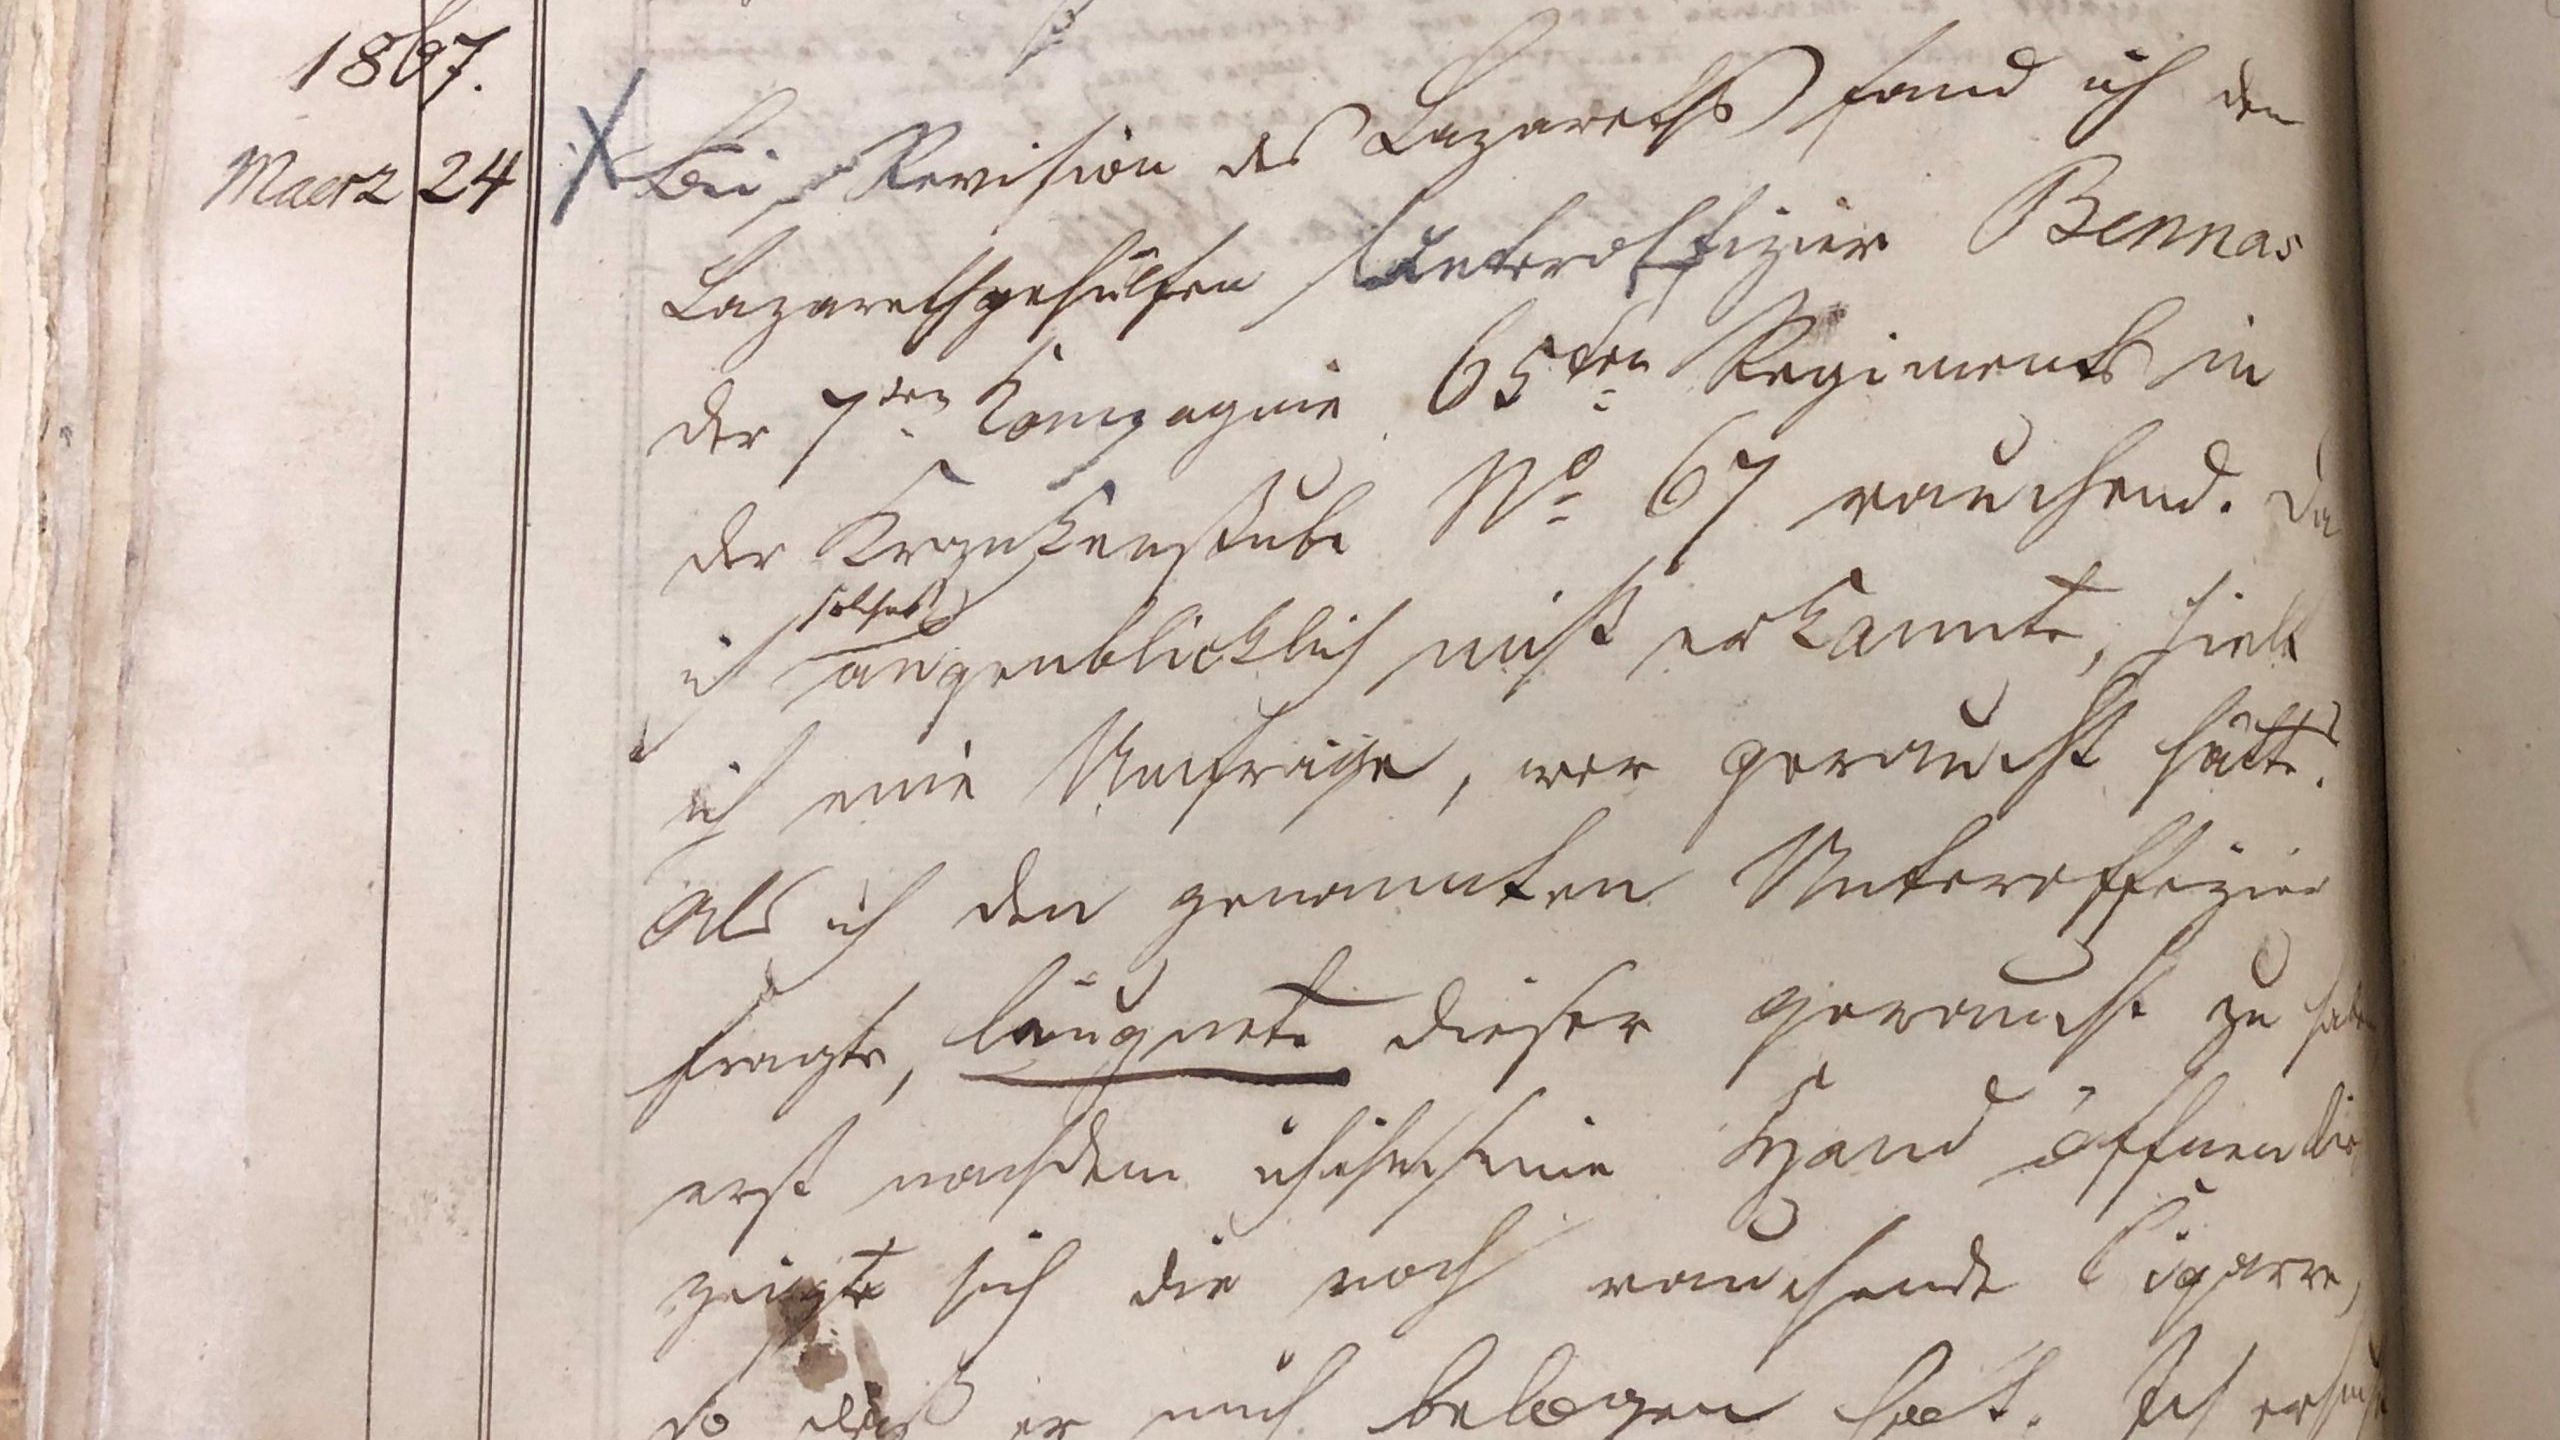 1867.
Maerz 24
Bei Revision des Lazareths fand ich den
Lazarethgehülfen Unteroffizier Bennas
der 7ten Kompagnie 65ten Regiments in
der Krankenstube No 67 rauchend. Da
solches
ich augenblicklich nicht erkannte, hielt
ich eine Umfrage, wer geraucht hätte.
Als ich den genannten Unteroffizier
fragte, läugnete dieser geraucht zu haben
erst nachdem ich ihn seine Hand öffnen ließ
zeigte sich die noch rauchende Cigarre,
so daß er mich belogen hat. Ich ersuche